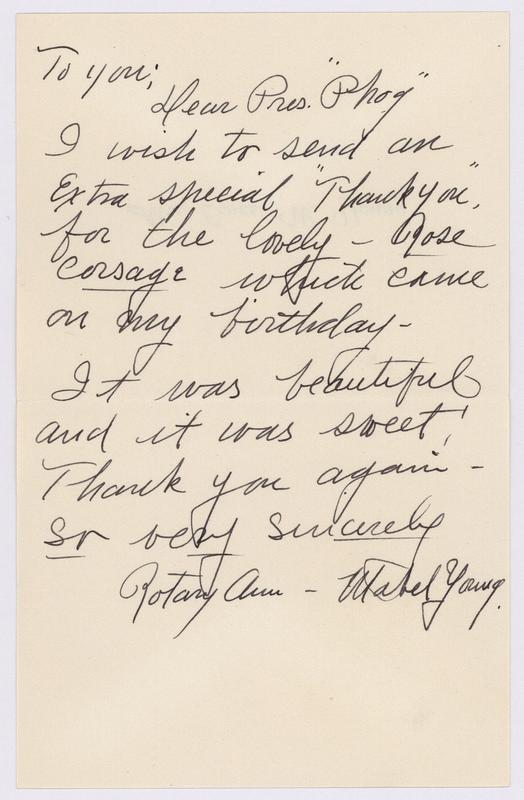 To you;
Dear Pres. "Phog"
I wish to send an
Extra special "Thank you",
for the lovely - Rose
corsage which came
on my birthday -
It was beautiful
and it was sweet!
Thank you again -
So very sincerely
Rotary Ann - Mabel Young.